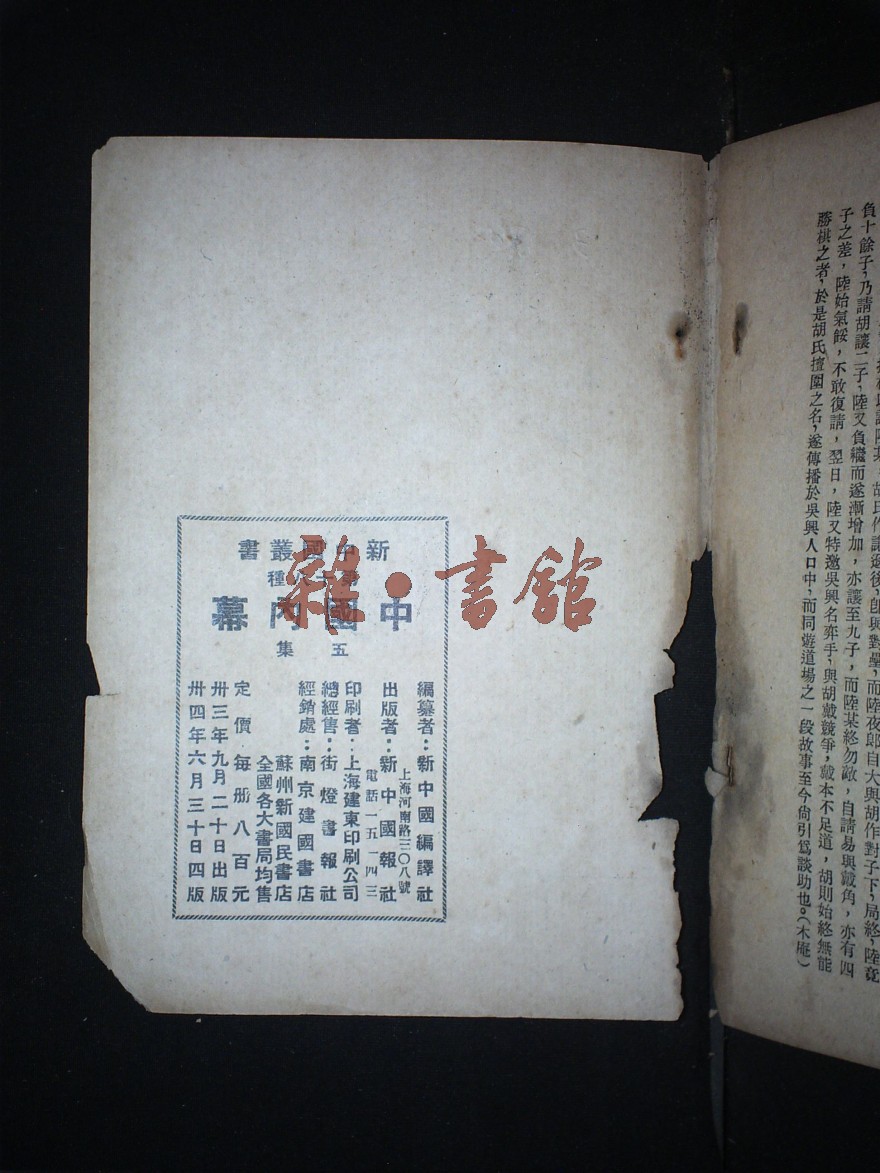 負十餘子，乃請胡讓二子，陸又負繼而遂漸增加，亦讓至九子，而陸某終勿敵，自請易與戴角，亦有四
子之差，陸始氣餒，不敢復請，翌日，陸又特邀吳興名弈手，與胡戴競爭，戴本不足道，胡則始終無能
勝棋之者，於是胡氏擅圍之名，遂傳播於吳興人口中，而同遊道場之一段故事至今尙引爲談助也。（木庵）
新中國叢書
種
中國內幕
五集
編纂者：新中國編譯社
上海河南路三〇八號
出版者：新中國報社
電話一五一四三
印刷者：上海建東印刷公司
總經售：街燈書報社
經銷處：南京建國書店
蘇州新國民書店
全國各大書局均售
定價每册八百元
卅三年九月二十日出版
卅四年六月三十日四版
雜·書館